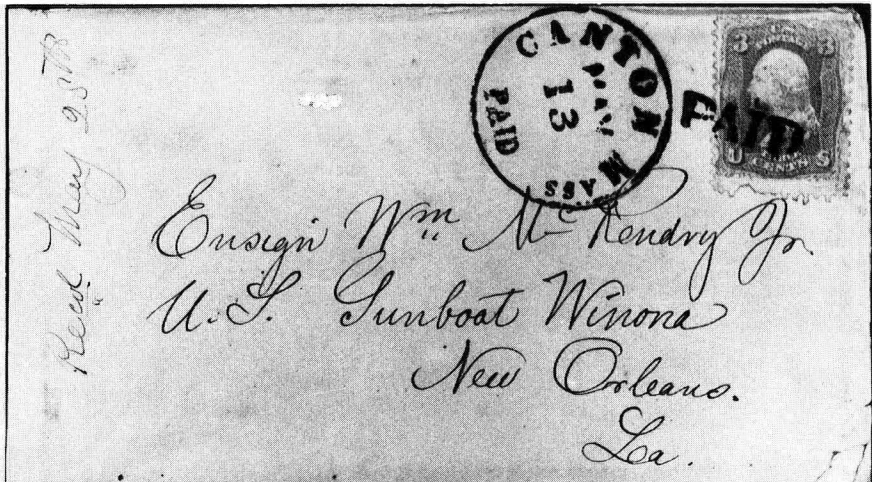 Recd May 25th
CANTON MASS
MAY
13
PAID
3 3
PAID
U CENTS S
Ensign Wm Mc Kendry Jr.
U.S. Gunboat Winona
New Orleans.
La.